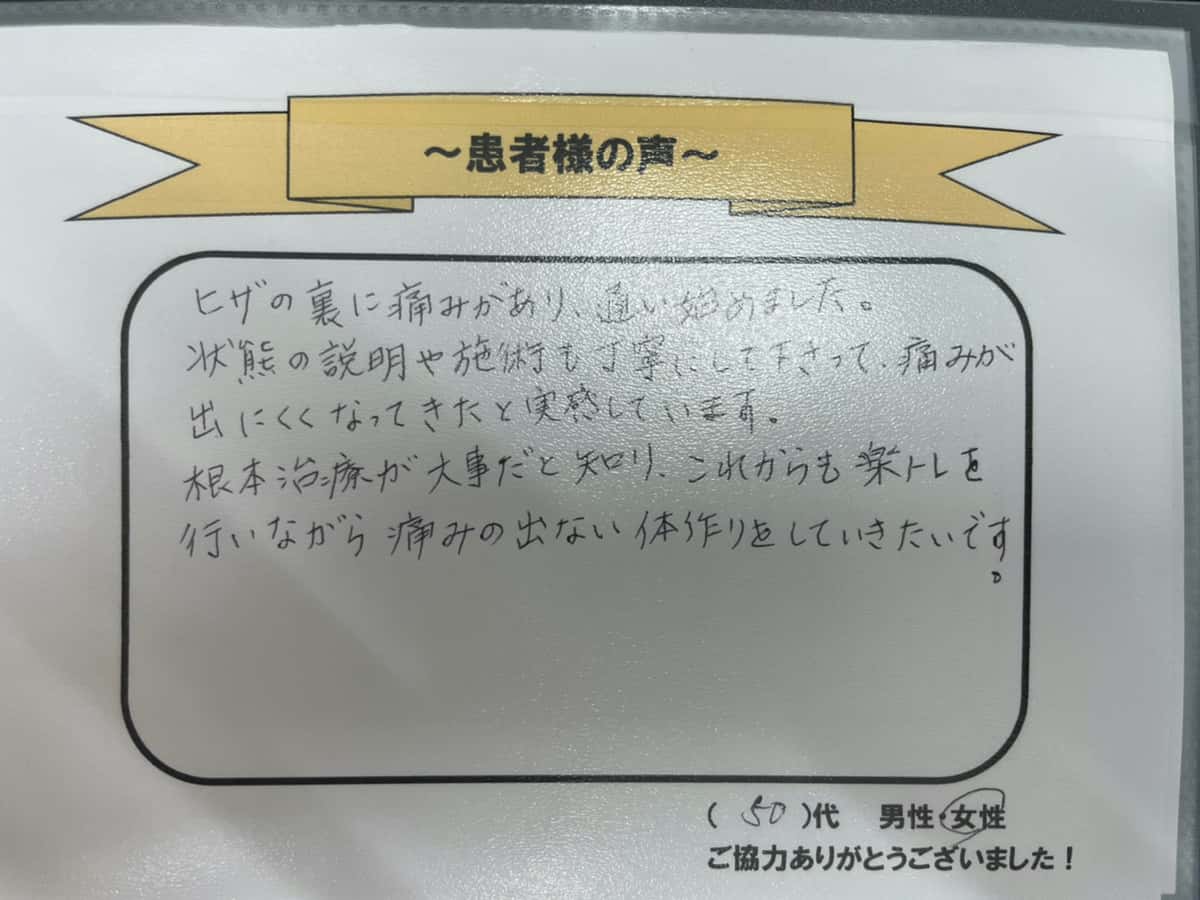 ～患者様の声～
ヒザの裏に痛みがあり、通い始めました。
状態の説明や施術も丁寧にして下さって、痛みが
出にくくなってきたと実感しています。
根本治療が大事だと知り、これからも楽トレを
行いながら痛みの出ない体作りをしていきたいです。
( 50 )代 男性・女性
ご協力ありがとうございました！